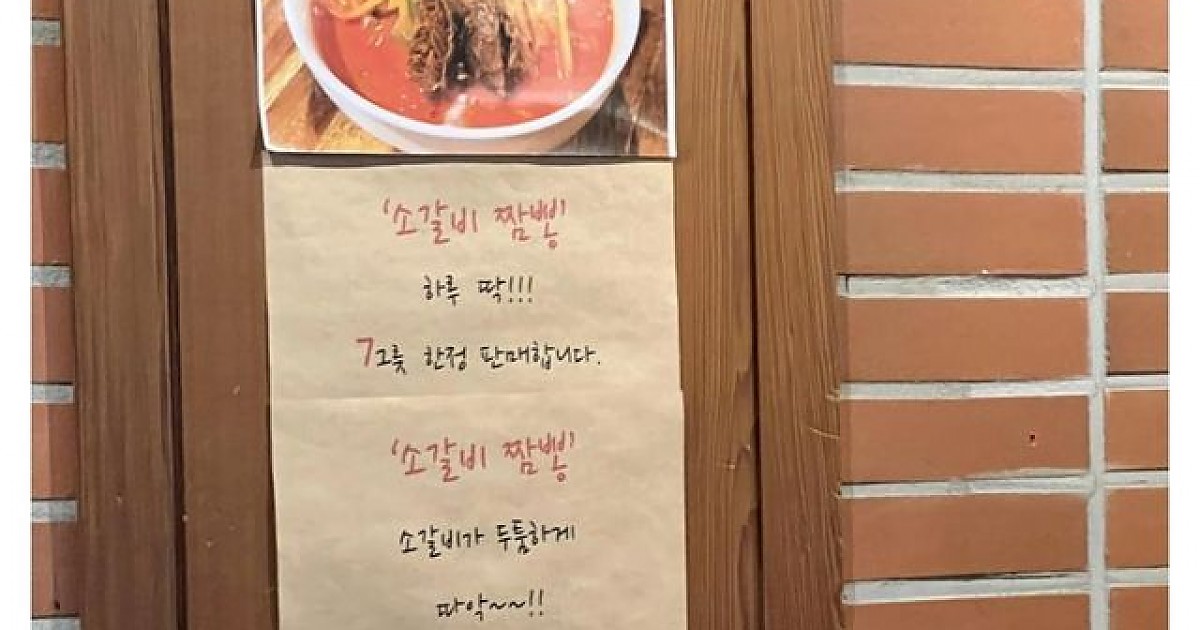 '소갈비 짬뽕'
하루 딱!!!
7그릇 한정 판매합니다.
'소갈비 짬뽕'
소갈비가 두툼하게
따악~~!!